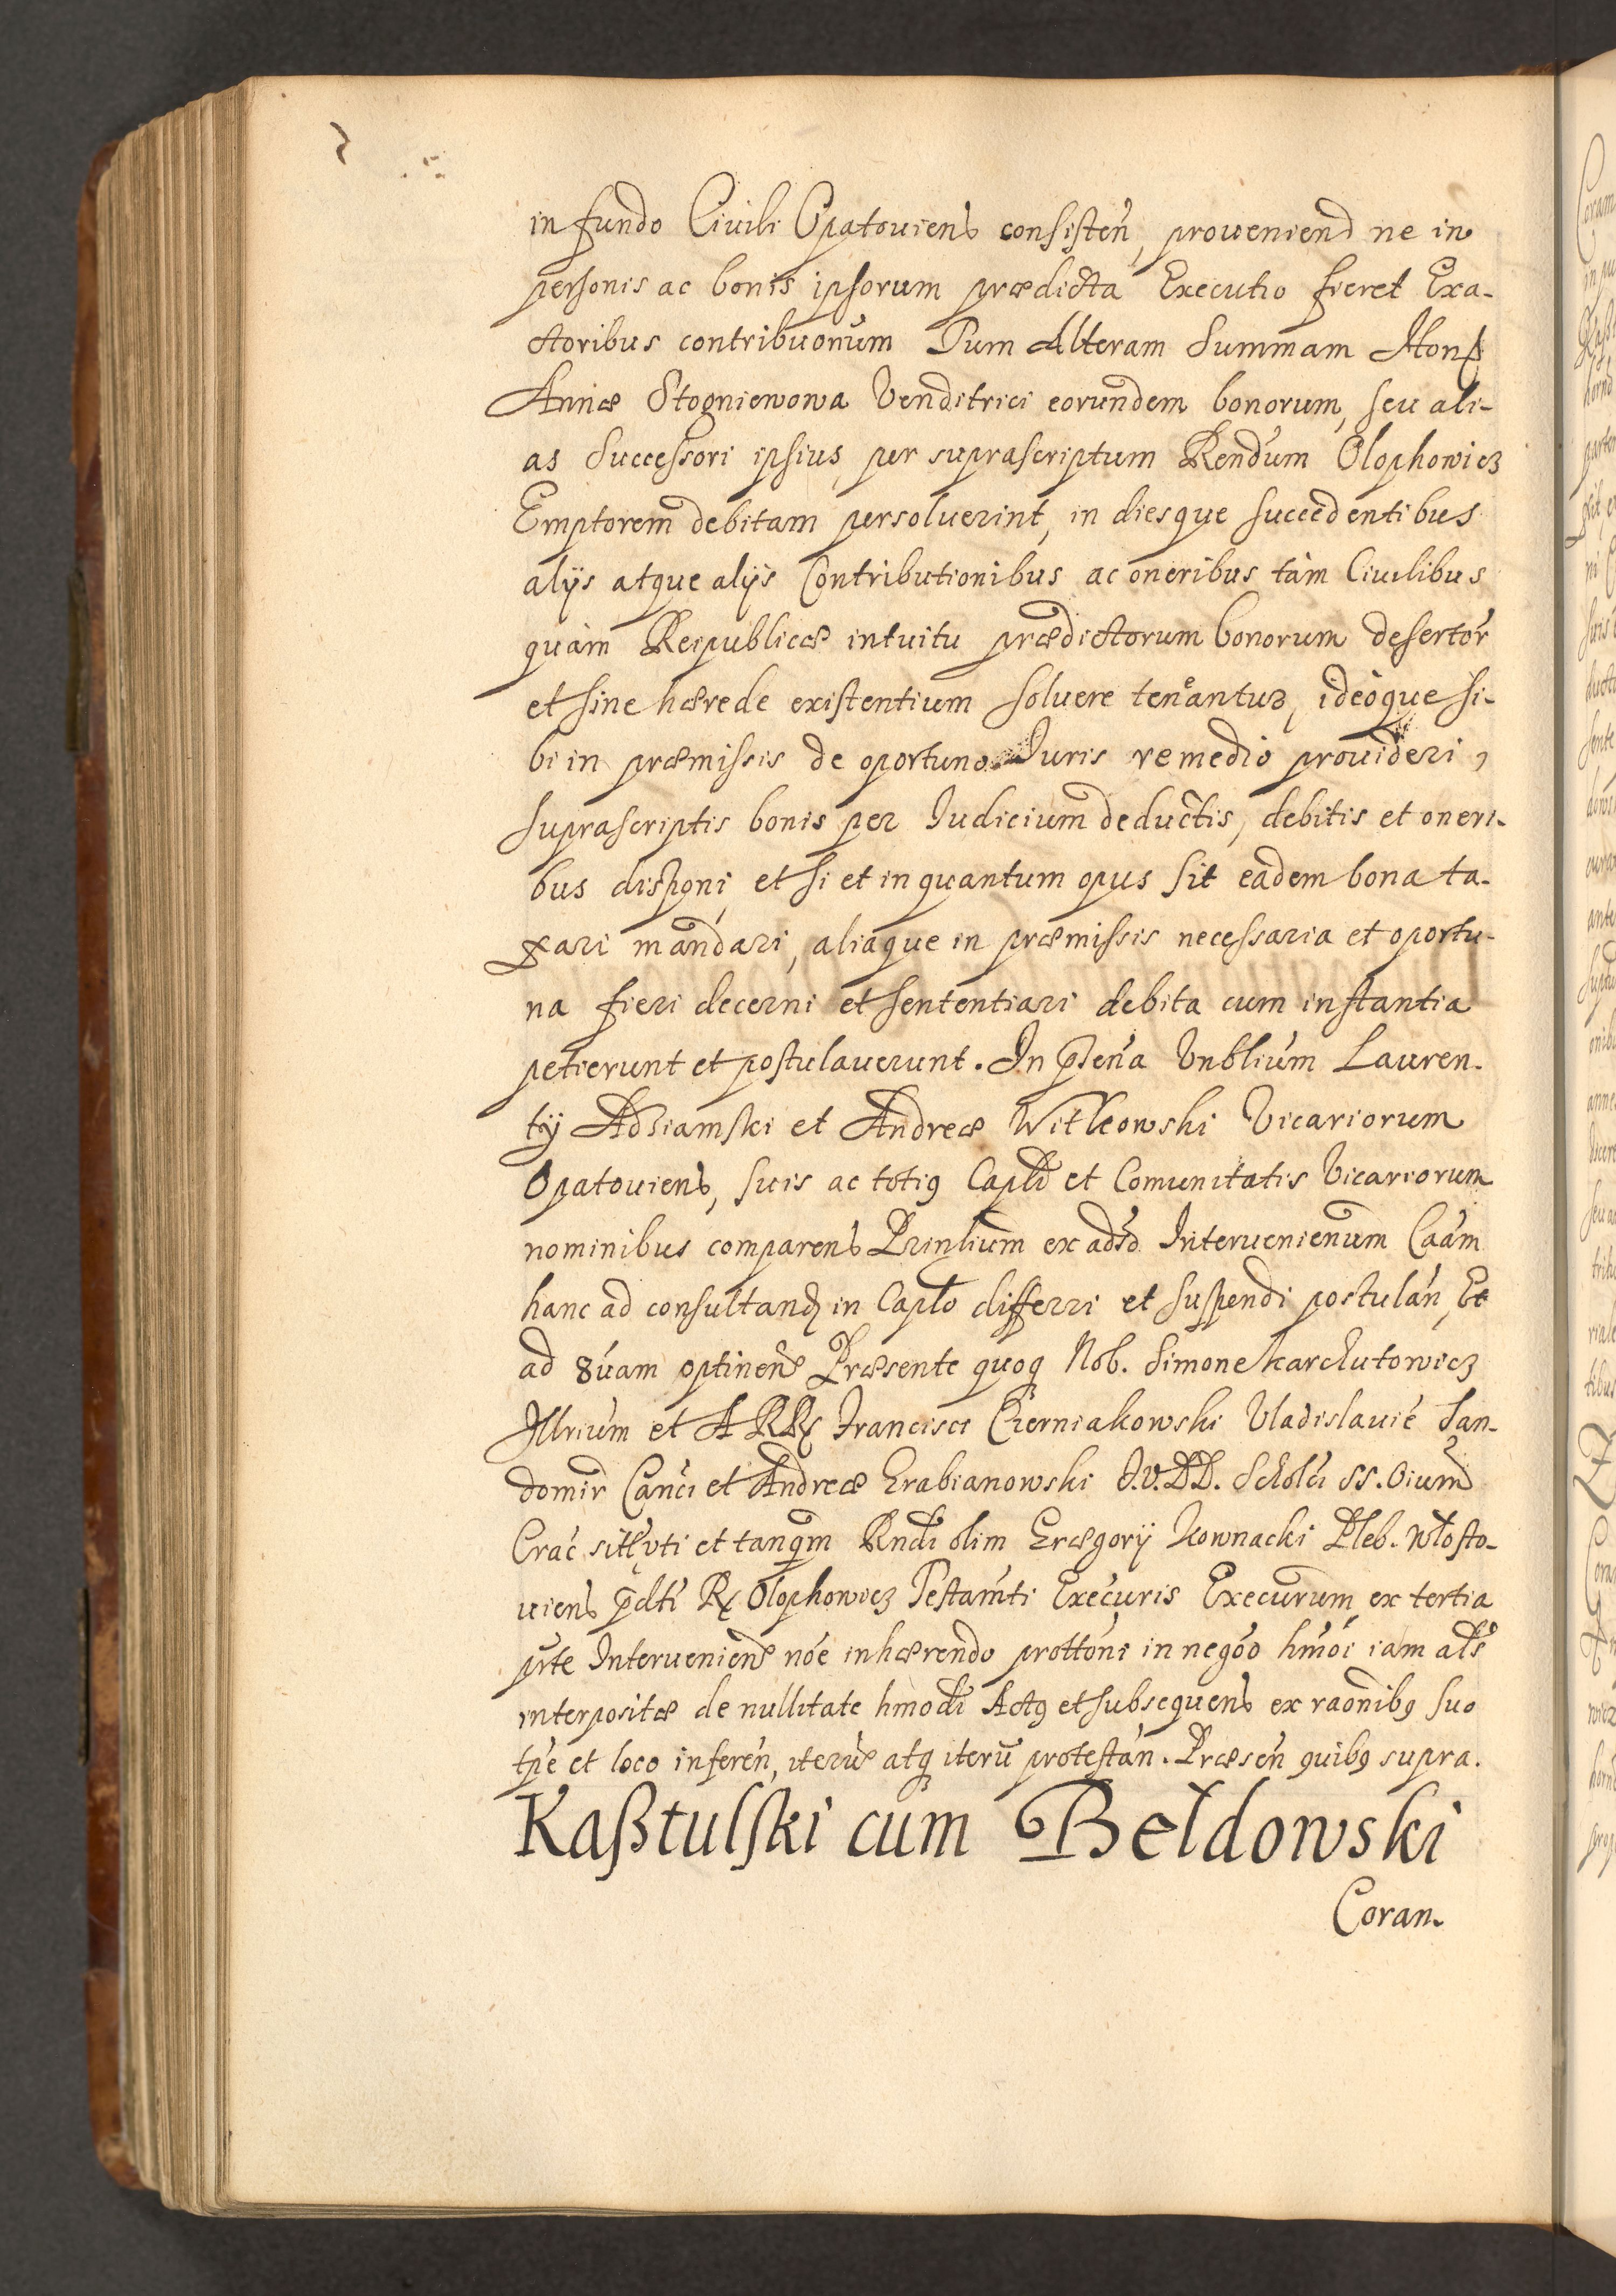 in fundo Ciuili Opatouiens consisteñ, proueniend ne in
personis ac bonis ipsorum prædicta Executio fieret Exa-
ctoribus contribuonum Tum Alteram Summam Hon
Annæ Stogniewowa Venditrici eorundem bonorum, seu ali-
as Successori ipsius, per suprascriptum Rendum Olophowicz
Emptorem debitam persoluerint, in diesque succedentibus
alijs atque alijs Contributionibus ac oneribus tàm Ciuilibus
quàm Reipublicæ intuitu prædictorum bonorum desertor
et sine hærede existentium soluere teneantur, ideòque si-
bi in præmissis de oportuno Iuris remedio prouideri,
suprascriptis bonis per Iudicium deductis, debitis et oneri-
bus disponi, et si et in quantum opus sit eadem bona ta-
xari mandari, aliaque in præmissis necessaria et oportu-
na fieri decerni et sententiari debita cum instantia
petierunt et postulauerunt. In p̃senã Vnblium Lauren-
tij Adziamski et Andreæ Witkowski Vicariorum
Opatouiens, suis ac totiq Capli et Comunitatis Vicariorum
nominibus comparens Prinlium ex aduso Interuenienum Caam
hanc ad consultand in Caplo differri et suspendi postulañ, Et
ad 8uam optinens Præsente quoq Nob. Simone Karchutowicz
Illrium et A RR Francisci Czerniakowski Vladislauie San-
domir Canci et Andreæ Grabianowski I.V.DD. Scholci SS. Oium
Crac sitt vti et tanqm Rndi olim Grægorij Kownacki Pleb. Włosto-
uiens p̃dti R Olophowicz Testamti Execuris Execurum ex tertia
prte Interueniens noe inhærendo prottoni in negoo hmoi iam als
interpositæ de nullitate hmodi Actq et subsequens ex raonibq suo
tpe et loco infereñ, iterũ atq iterũ protestañ. Præseñ quibq supra.
Kasztulski cum Bełdowski
Coran-